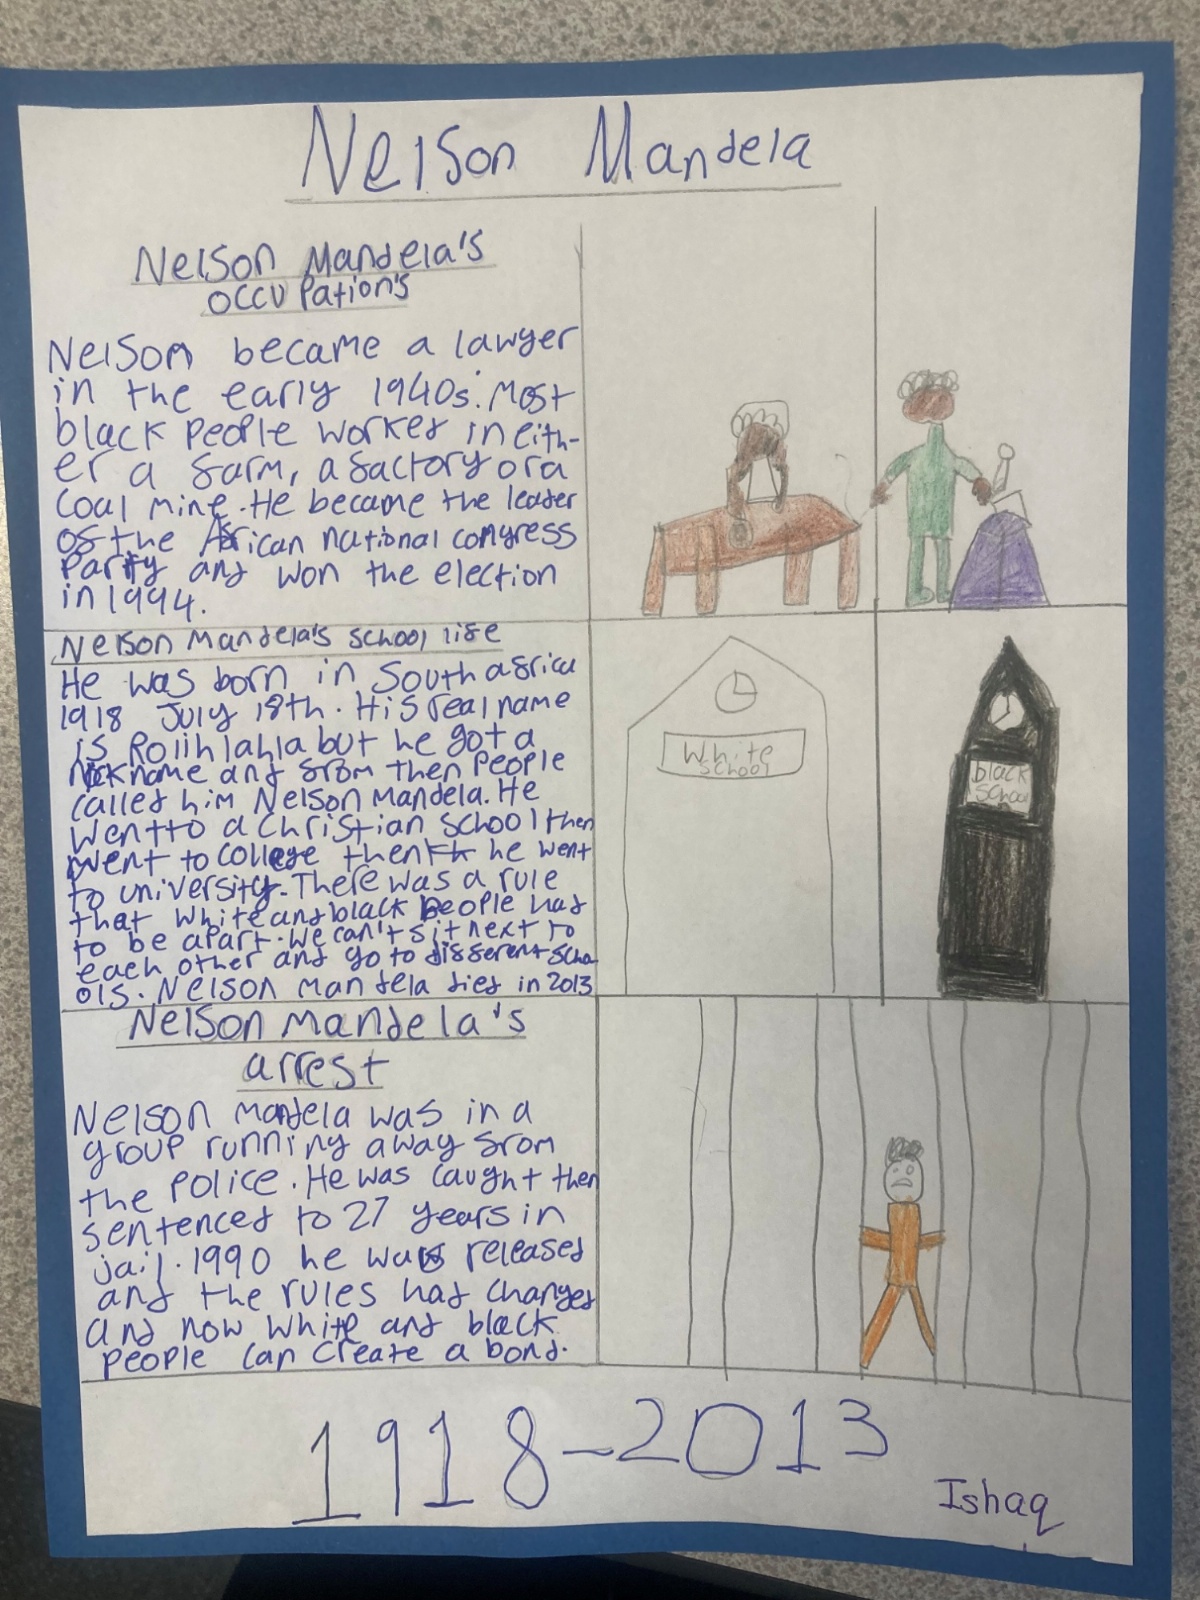 Nelson Mandela
Nelson Mandela's
occupation's
Nelson became a lawyer
in the early 1940s. Most
black people worked in eith-
er a farm, a factory or a
coal mine. He became the leader
of the African national congress
Party and won the election
in 1994.
Nelson Mandela's school life
He was born in South africa
1918 July 18th. His real name
is Rolihlahla but he got a
nickname and from then people
called him Nelson Mandela. He
went to a Christian school then
went to college then he went
to university. There was a rule
that white and black people had
to be apart. We can't sit next to
each other and go to different scho
ols. Nelson Mandela died in 2013
Nelson Mandela's
arrest
Nelson Mandela was in a
group running away from
the police. He was caught then
sentenced to 27 years in
jail. 1990 he was released
and the rules had changed
and now white and black
people can create a bond.
White
school
black
School
1918-2013
Ishaq